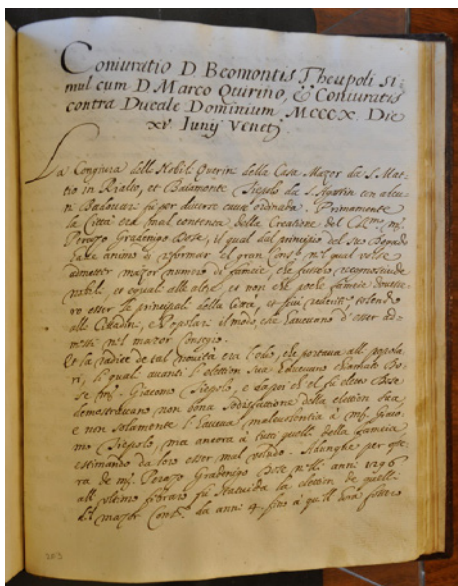 Coniuratio D. Beomontis Theupoli si:
mul cum D. Marco Quirino, & Coniuratis
contra Ducale Dominium MCCCX. Die
xv Iunij Venet
La Congiura delli Nobili Querin della Casa Mazor da S. Mat-
tio in Rialto, et Baiamonte Tiepolo da S. Agustin con alcu-
ni Badoeri fù per diverse cause ordinada. Primamente
la Città era mal contenta della Creatione del
Perazo Gradenigo Dose, il qual dal principio del suo Dogado
have animo di reformar el gran Cons° nel qual volse
admetter mazor numero di fameie, che fussero recognossiude
nobili, et equal alle altre, et non che poche fameie dovesse-
ro esser le principali della Città, et più reverite tolendo
alli Cittadini, e Popolari il modo, che havevano d'esser ad-
messi nel mazor Conseglio.
Et la radice de tal novità era l'odio, che portava alli popola-
ri, li quali avanti l'election sua volevano chiamato Do-
se Giacomo Tiepolo, e dapoi che el fù eletto Dose
demostravano non bona sodisfatione della election sua,
e non solamente li haveva malevolentia à Giaco-
mo Tiepolo, ma ancora à tutti quelli della fameia
estimando da loro esser mal voludo. Adunque per ope-
ra de Perazo Gradenigo Dose anni 1296
all' ultimo febraro fù statuida la election de quelli
del mazor Cons° da anni 4. fino à
203